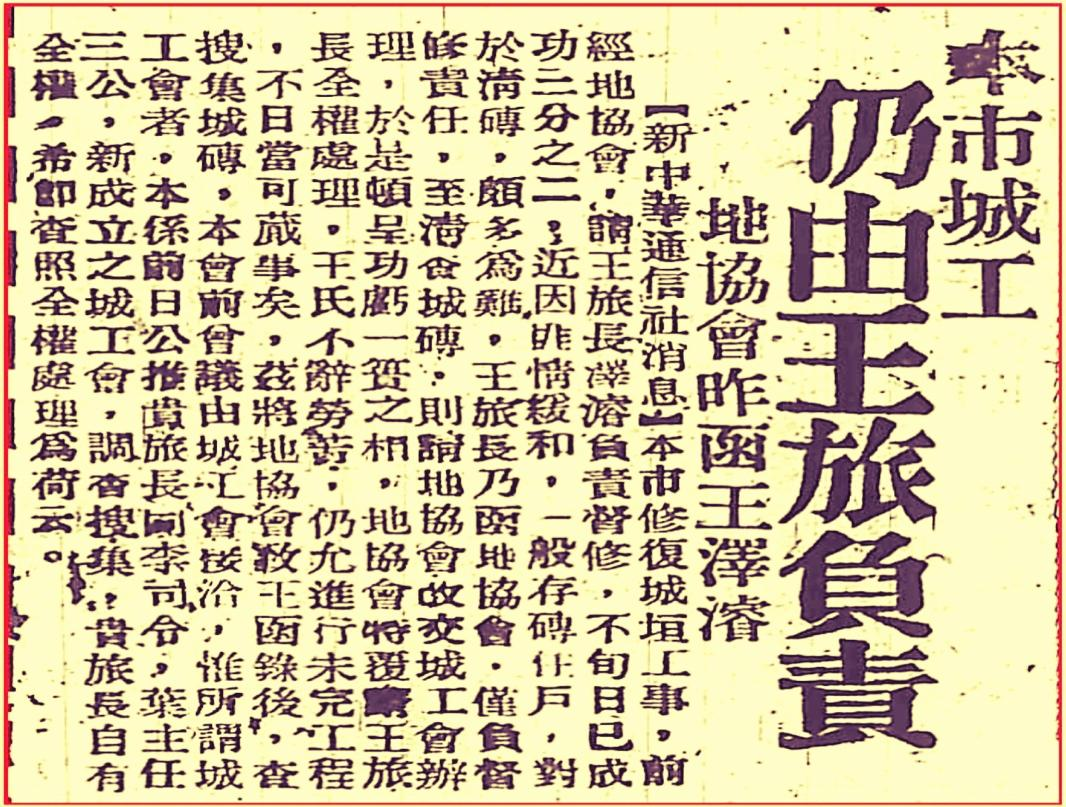 本市城工
仍由王旅負責
地協會昨函王澤濬
【新中華通信社消息】本市修復城垣工事，前
經地協會，請王旅長澤濬負責督修，不旬日已成
功三分之二，近因匪情緩和，一般存磚住戶，對
於淸磚，頗多爲難，王旅長乃函地協會，僅負督
修責任，至淸食城磚，則請地協會改交城工會辦
理，於是頓呈功虧一簣之相，地協會特覆請王旅
長全權處理，王氏不辭勞苦，仍允進行未完工程
，不日當可蕆事矣，茲將地協會致王函錄後，查
搜集城磚，本會前曾議由城工會接洽，惟所謂城
工會者，本係前日公推貴旅長同李司令，葉主任
三公，新成立之城工會，調查搜集，貴旅長自有
全權，希卽查照全權處理爲荷云。